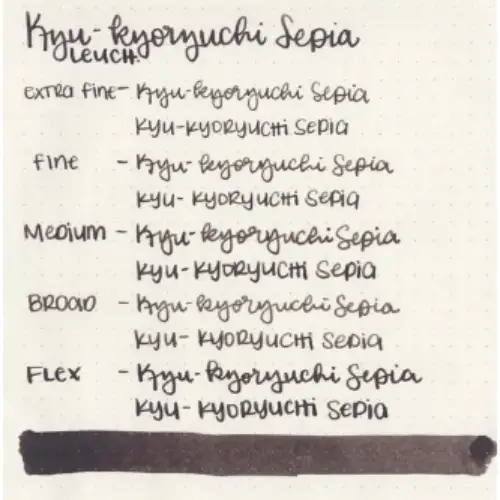 Kyu-kyoryuchi Sepia
LEUCH.
EXTRA FINE - Kyu-kyoryuchi Sepia
KYU-KYORYUCHI SEPIA
FINE - Kyu-kyoryuchi Sepia
KYU-KYORYUCHI SEPIA
MEDIUM - Kyu-kyoryuchi Sepia
KYU-KYORYUCHI SEPIA
BROAD - Kyu-kyoryuchi Sepia
KYU-KYORYUCHI SEPIA
FLEX - Kyu-kyoryuchi Sepia
KYU-KYORYUCHI SEPIA